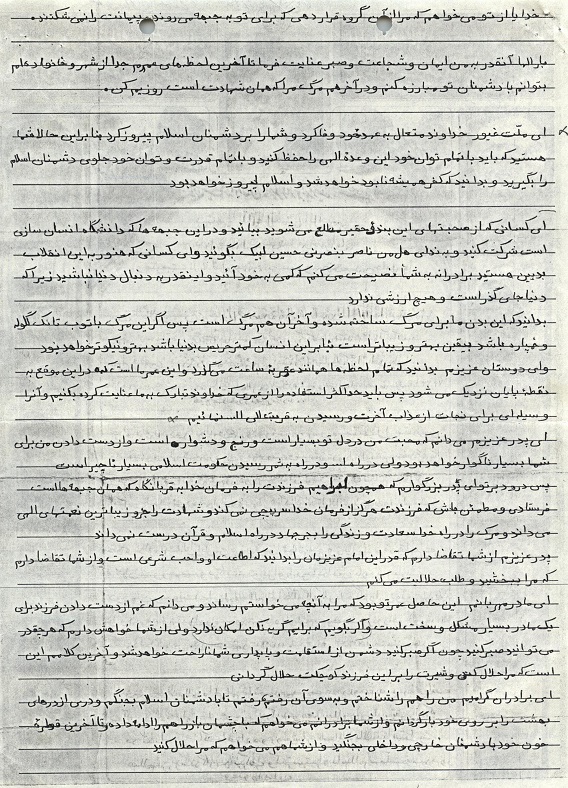 - خدایا از تو می‌خواهم که مرا از آن گروه قرار دهی که برای تو به جبهه می‌روند و پیمانت را نمی‌شکنند
بار الها آنقدر به من ایمان و شجاعت و صبر عنایت فرما تا آخرین لحظه‌های عمرم جدا از شهر و خانواده‌ام
بتوانم با دشمنان تو مبارزه کنم و در آخر هم مرگ مرا که همان شهادت است روزیم کن.
ای ملّت غیور خداوند متعال به عهد خود وفا کرد و شما را بر دشمنان اسلام پیروز کرد بنابراین حالا شما
هستید که باید با تمام توان خود این وعدهٔ الهی را حفظ کنید و با تمام قدرت و توان خود جلوی دشمنان اسلام
را بگیرید و بدانید که کفر همیشه نابود خواهد شد و اسلام پیروز خواهد بود
ای کسانی که از صحبتهای این بندهٔ حقیر مطلع می‌شوید بیائید و در این جبهه‌ها که دانشگاه انسان سازی
است شرکت کنید و به ندای هل من ناصر ینصرنی حسین لبیک بگوئید و ای کسانی که هنوز به این انقلاب
بدبین هستید برادرانه به شما نصیحت می‌کنم که کمی به خود آئید و اینقدر به دنبال دنیا نباشید زیرا که
دنیا جای گذر است و هیچ ارزشی ندارد
بدانید که این بدن ما برای مرگ ساخته شده و آخر آن هم مرگ است پس اگر این مرگ با توپ تانک گلوله
و خمپاره باشد بیقین بهتر و زیباتر است بنابراین انسان کمتر حریص بدنیا باشد بهتر و نیکوتر خواهد بود
ولی دوستان عزیزم بدانید که تمام لحظه‌ها همانند ساعت می‌گذرد و این عمر ما است که در این موقع به
نقطهٔ پایان نزدیک می‌شود پس باید حداکثر استفاده را از عمری که خداوند تبارک به ما عنایت کرده بکنیم و آنرا
وسیله‌ای برای نجات از عذاب آخرت و رسیدن به قرب
ای پدر عزیزم می‌دانم که محبت من در دل تو بسیار است و رنج و دشوار است و از دست دادن من برای
شما بسیار ناگوار خواهد بود ولی در راه اسلام و در راه به ثمر رسیدن حکومت اسلامی بسیار ناچیز است
پس درود بر تو ای پدر بزرگوارم که همچون ابراهیم فرزندت را به فرمان خدا به قربانگاه که همان جبهه‌ها است
فرستادی و مطمئن باش که فرزندت هرگز از فرمان خدا سرپیچی نمی‌کند و شهادت را جزو زیباترین نعمتهای الهی
می‌داند و مرگ را در راه خدا سعادت و زندگی را بجز جهاد در راه اسلام و قرآن درست نمی‌داند
پدر عزیزم از شما تقاضا دارم که قدر این امام عزیزمان را بدانید که اطاعت او واجب شرعی است و از شما تقاضا دارم
که مرا ببخشید و طلب حلالیت می‌کنم
ای مادر مهربانم این حاصل عمر تو بود که مرا به آنچه می‌خواستم رساند و می‌دانم که غم از دست دادن فرزند برای
یک مادر بسیار مشکل و سخت است و اگر بگویم که برایم گریه نکن امکان ندارد ولی از شما خواهش دارم که هر چقدر
می‌توانید صبر کنید چون اگر صبر کنید دشمن از استقامت و پایداری شما ناراحت خواهد شد و آخرین کلامم این
است که مرا حلال کنی و شیرت را بر این فرزند کوچکت حلال گردانی
ای برادران گرامیم من راهم را شناختم و به سوی آن رفتم رفتم تا با دشمنان اسلام بجنگم و دری از درهای
بهشت را بر روی خود باز گردانم و از شما برادرانم می‌خواهم که با چشمان باز راهم را ادامه داده و تا آخرین قطرهٔ
خون خود با دشمنان خارجی و داخلی بجنگید و از شما هم می‌خواهم که مرا حلال کنید